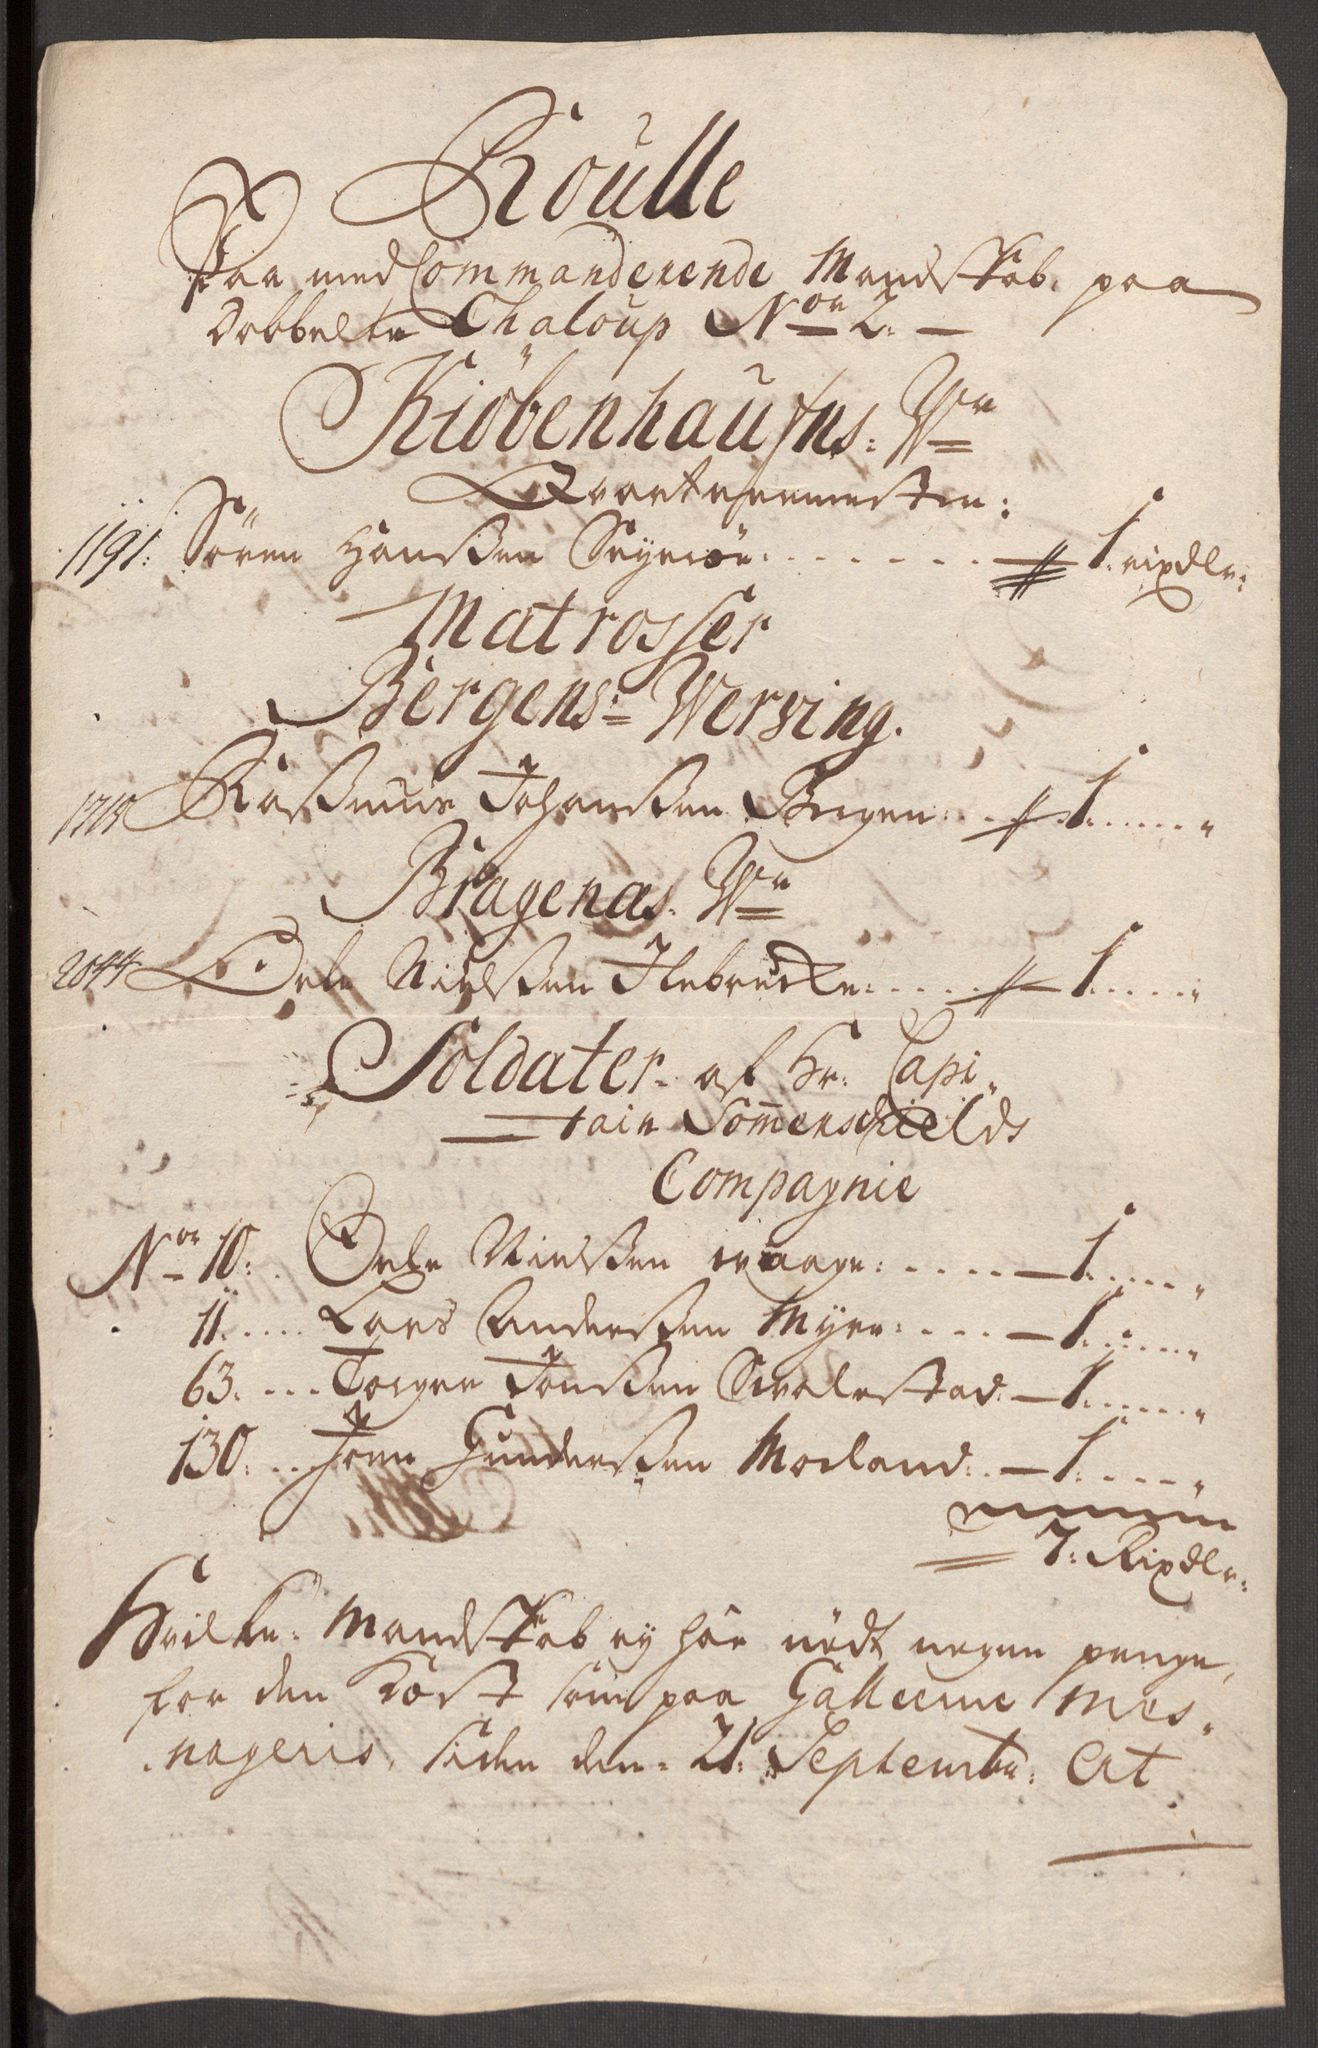 Roulle
Paa med Commanderende Mandskab. paa
Dobbelte Chaloup No: 2. —
Kiöbenhaufns: Wr
Qvarteermester:
1191: Sören Hanßen Seyeröe. . . . . . . . — 1. rixdlr:
Matrosser
Bergens= Werving.
1718 Raßmus Johanßen Bergen . . . 1. . . . . . "
Bragenæs. Wr
2044 Oele Nielßen Ilebrecke. . . . . — 1. . . . . "
Soldater. af Hr: Capi„
tain Som̄enschields
Compagnie
Nor 10: . Oele Nielßen Waage: . . . . . — 1. . . . . "
11. . . . . Lars Anderßen Myre. . . . . — 1. . . . . . "
63. . . . Torger Jonßen Svalestad. — 1. . . . . . "
130. . . Joen Gunderßen Morland. . — 1. . . . . "
7: Rixdlr.
Hvilke. Mandskab ey har nödt nogen penge,
for den Kost som paa Galleerne Mes„
nageris, siden den. 21. Septembr: At